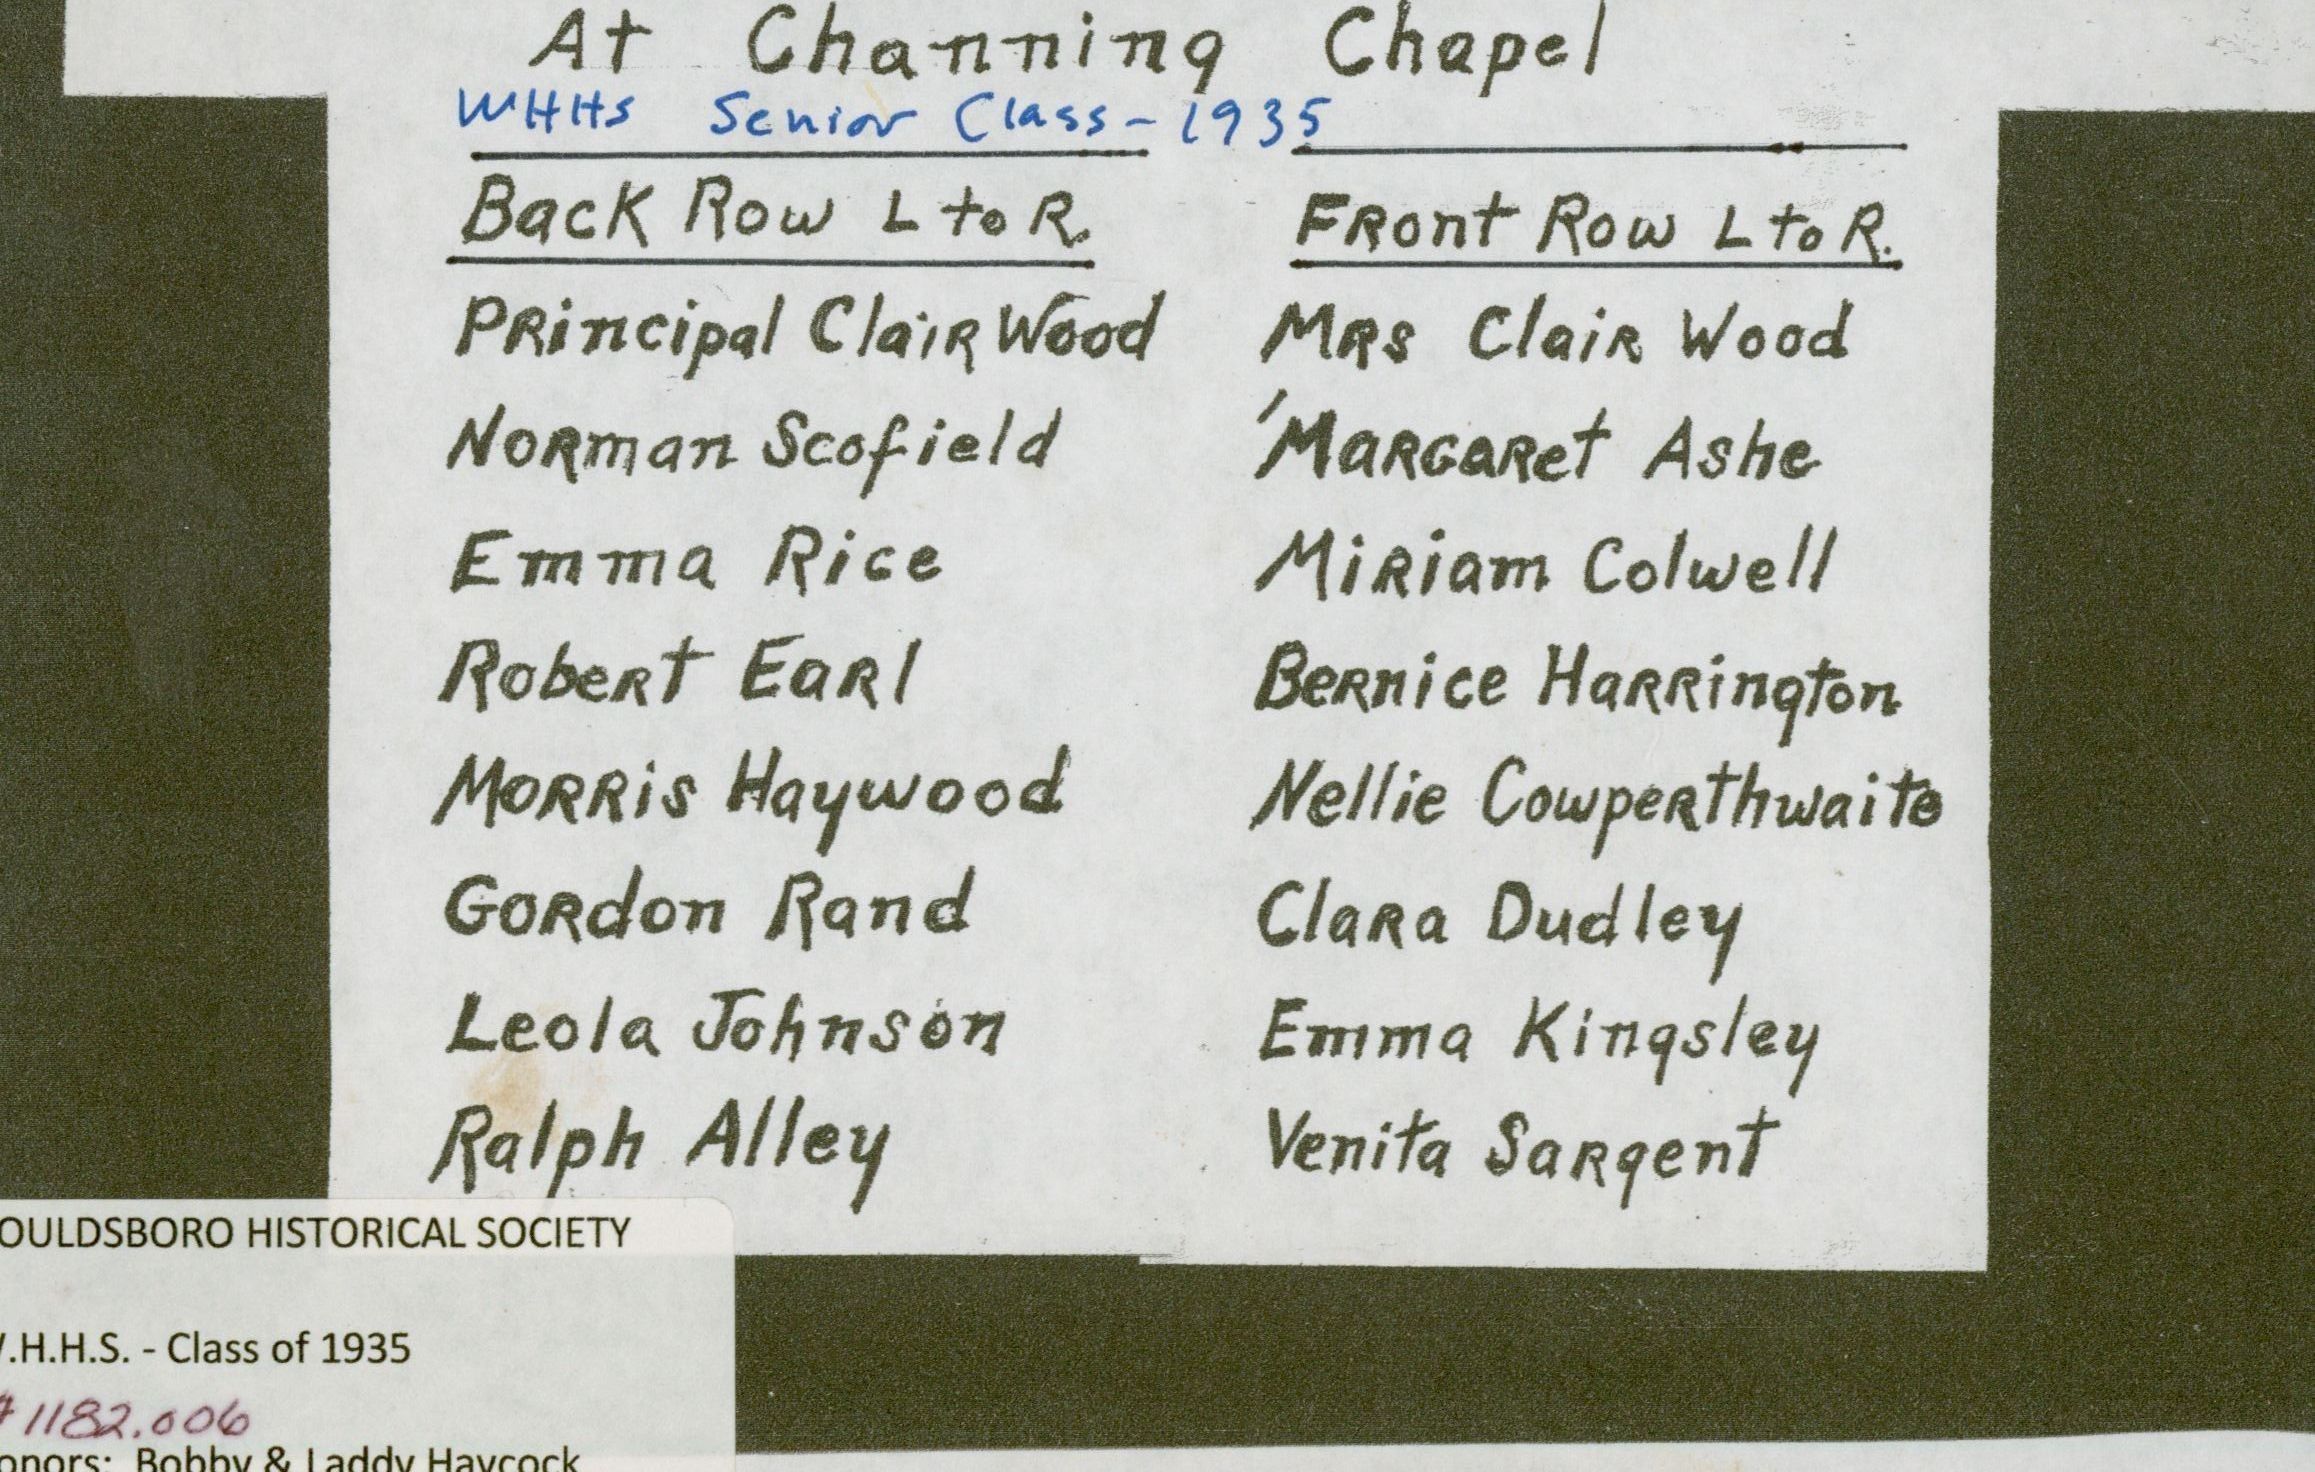 At Channing Chapel
WHHS Senior Class - 1935
Back Row L to R.
Principal Clair Wood
Norman Scofield
Emma Rice
Robert Earl
Morris Haywood
Gordon Rand
Leola Johnson
Ralph Alley
Front Row L to R.
Mrs Clair Wood
Margaret Ashe
Miriam Colwell
Bernice Harrington
Nellie Cowperthwaite
Clara Dudley
Emma Kingsley
Venita Sargent
OULDSBORO HISTORICAL SOCIETY
.H.H.S. - Class of 1935
#1182.006
onors: Bobby & Laddy Haycock